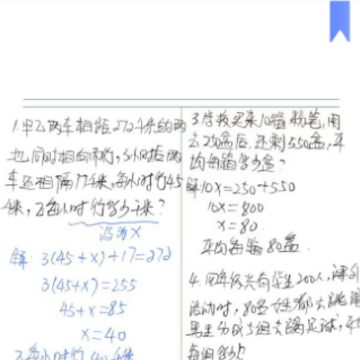 1.甲乙两车相距272千米的两
地,同时相向而行,3小时后两
车还相隔17千米,甲每小时行45
千米,乙每小时行多少千米?
设为x
解:3(45+x)+17=272
3(45+x)=255
45+x=85
x=40
3.学校买来10箱粉笔,用
去250盒后,还剩550盒,平
均每箱多少盒?
解10x=250+550
10x=800
x=80
平均每箱80盒.
4.四年级共有学生200人,课外
活动时,80名女生都去跳绳
男生分成5组去踢足球,平
每组多少